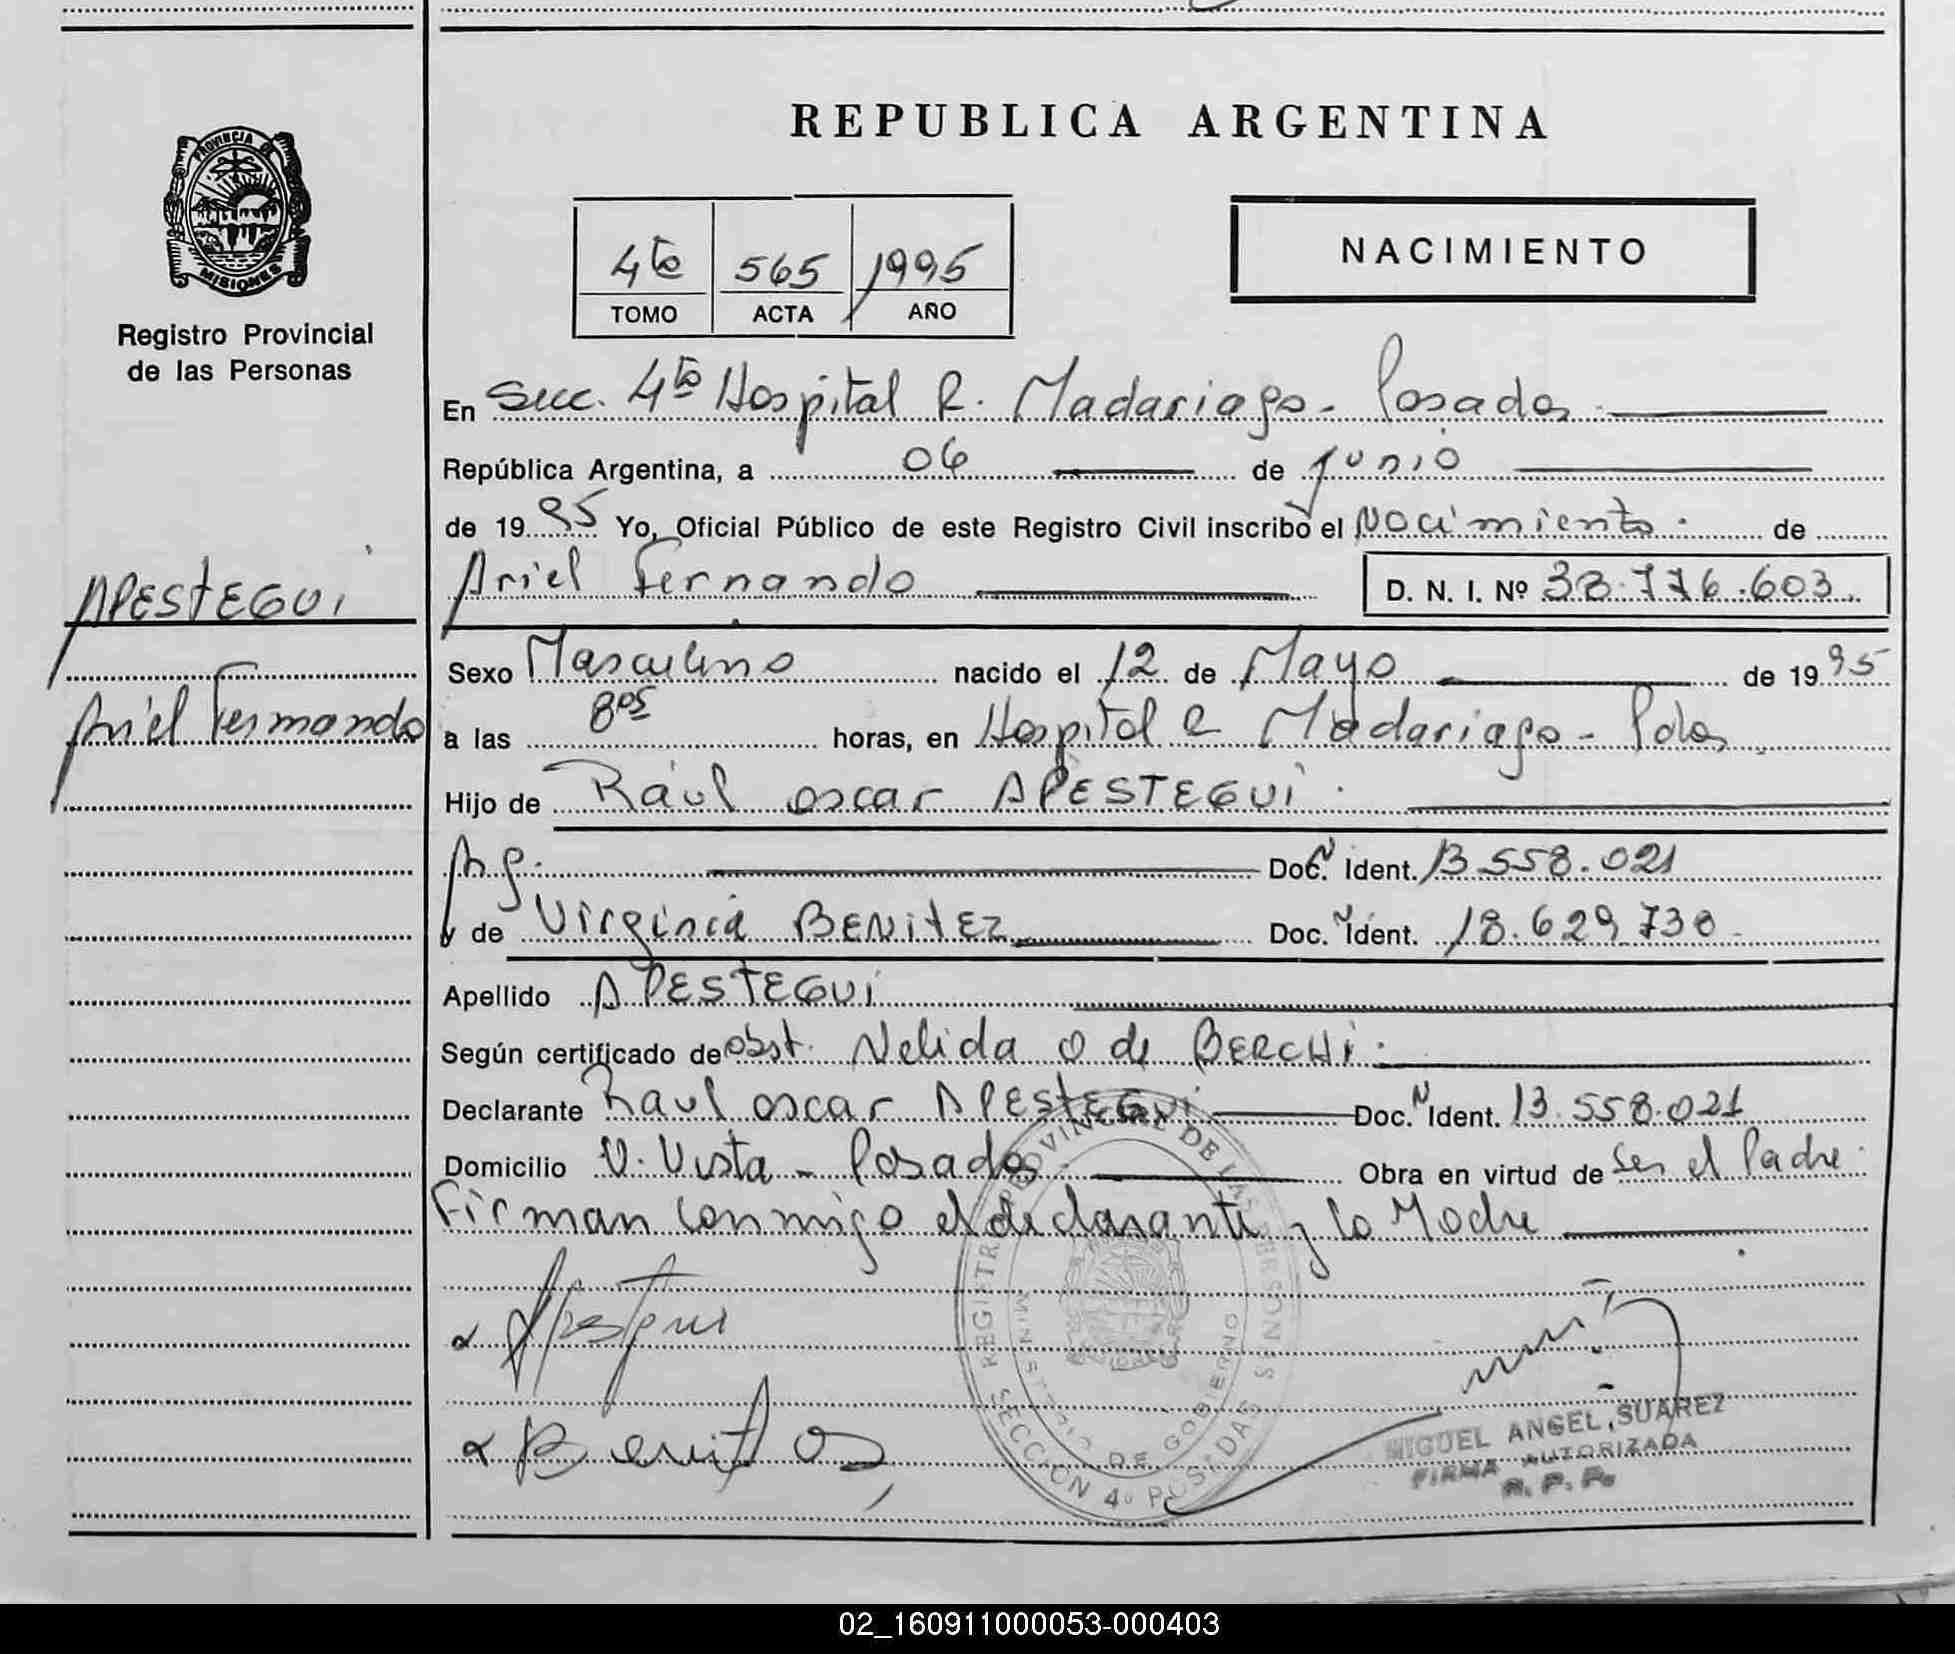 REPUBLICA ARGENTINA
PROVINCIA DE
MISIONES
Registro Provincial
de las Personas
4to 565 1995
TOMO ACTA AÑO
NACIMIENTO
En Secc. 4ta Hospital R. Madariaga - Posadas
República Argentina, a 06 de junio
de 1995 Yo, Oficial Público de este Registro Civil inscribo el Nacimiento de
Ariel Fernando D. N. I. Nº 38.776.603
APESTEGUI
Ariel Fernando
Sexo Masculino nacido el 12 de Mayo de 1995
a las 8 horas, en Hospital R Madariaga - Pdas
Hijo de Raúl oscar APESTEGUI
Arg. Doc. Ident. 13.558.021
y de Virginia BENITEZ Doc. Ident. 18.629.738
Apellido APESTEGUI
Según certificado de obst. Nelida O de BERCHI
Declarante Raul oscar APESTEGUI Doc. Ident. 13.558.021
Domicilio V. Vista - Posadas Obra en virtud de ser el Padre
Firman conmigo el declarante y la Madre
REGISTRO PROVINCIAL DE LAS PERSONAS
MINISTERIO DE GOBIERNO
SECCION 4º POSADAS
MIGUEL ANGEL SUAREZ
FIRMA AUTORIZADA
R. P. P.
02_160911000053-000403